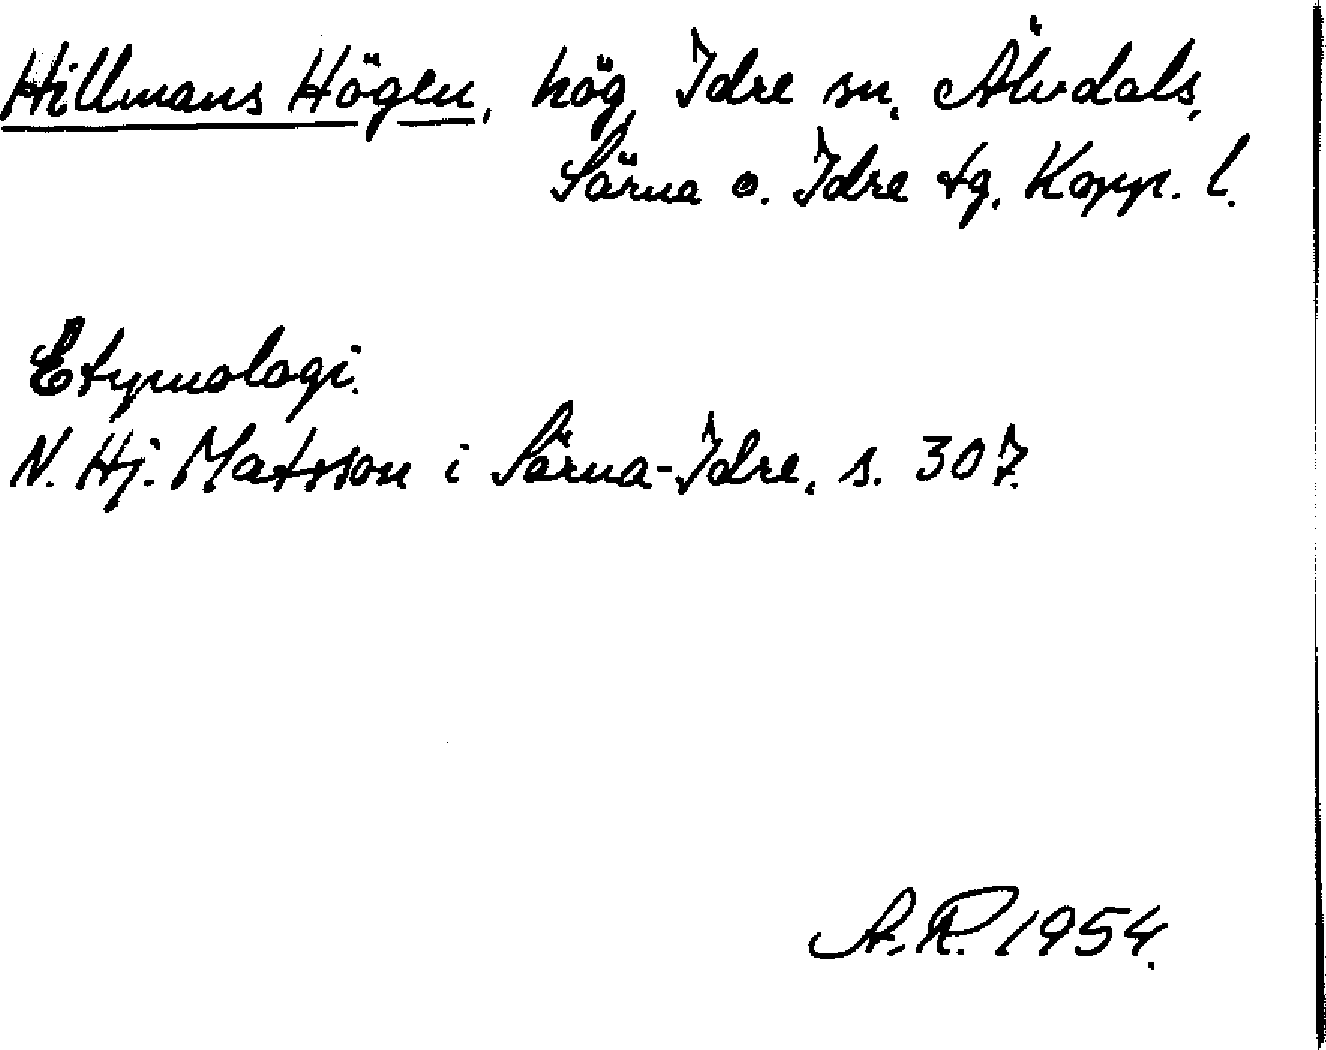 Hillmans Högen, hög, Idre sn, Älvdals,
Särna o. Idre tg, Kopp. l.
Etymologi.
N. Hj. Matsson i Särna-Idre, s. 307.
A.R. 1954.